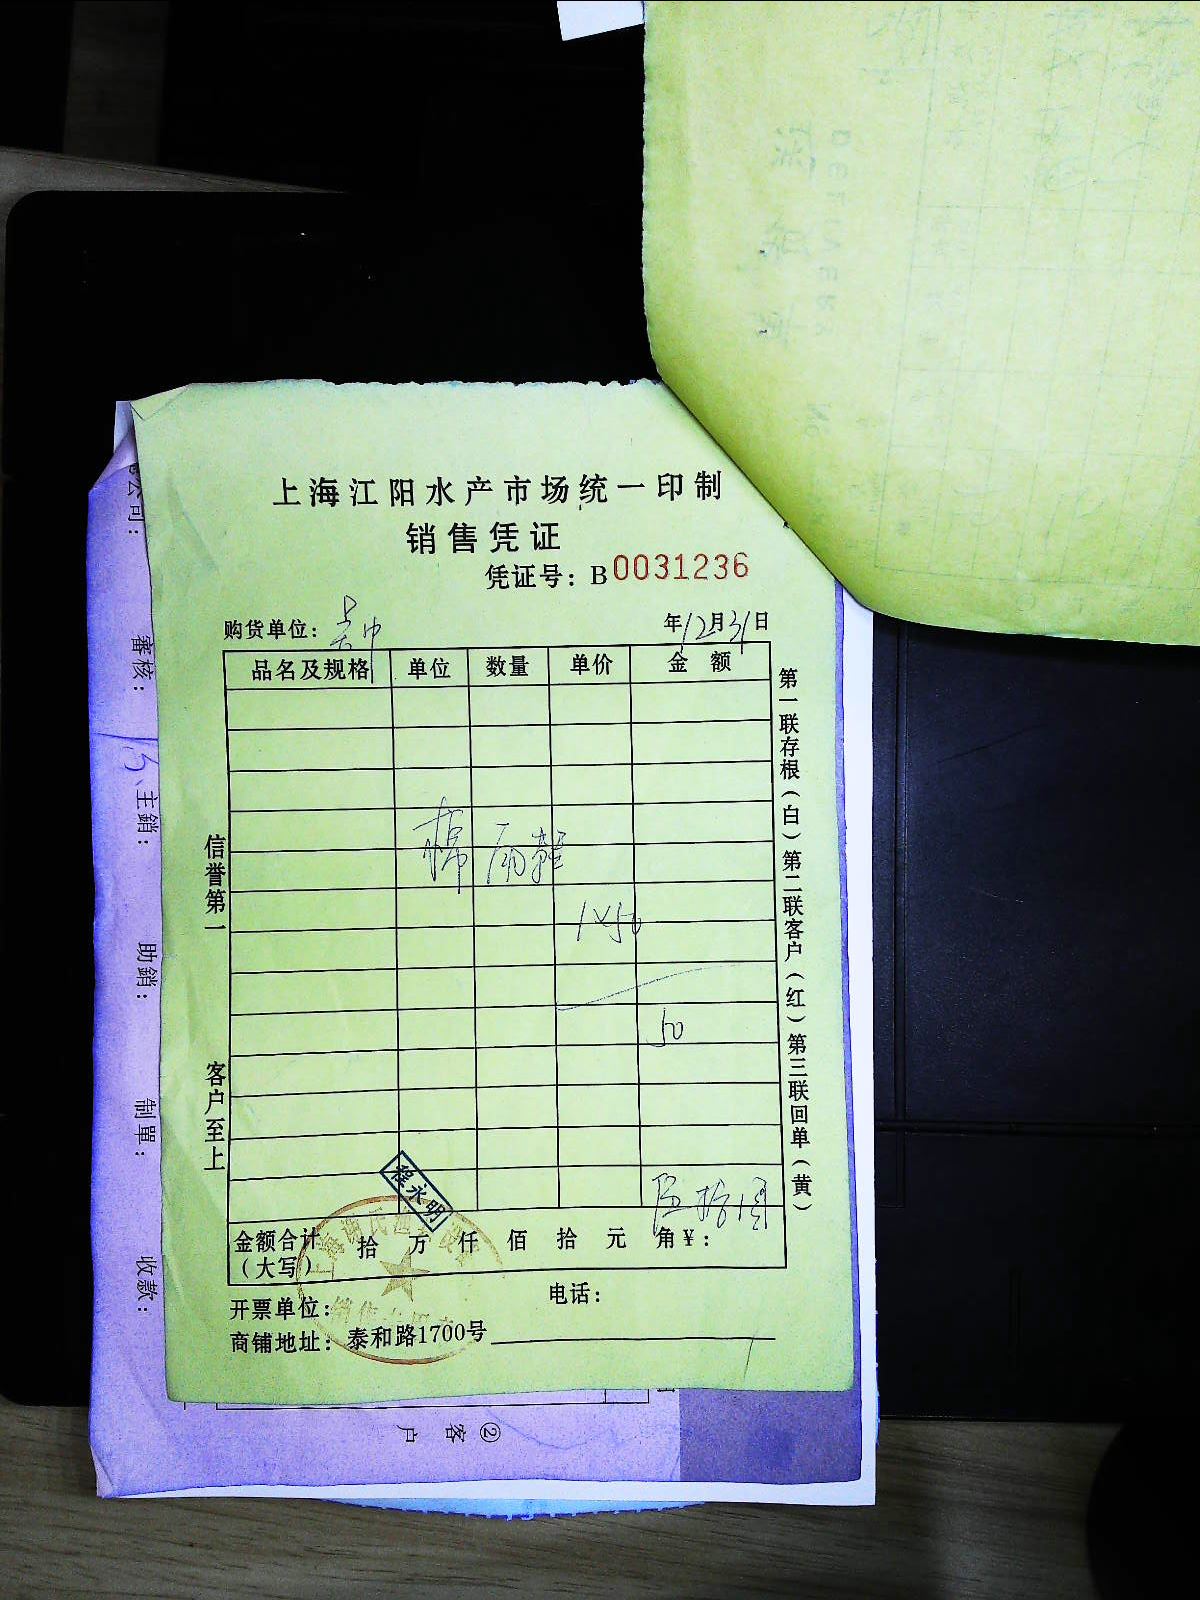 上海江阳水产市场统一印制
销售凭证
凭证号：B 0031236
购货单位：
年12月31日
品名及规格 单位 数量 单价 金额
棉雨鞋
1×50
50
伍拾圆
金额合计（大写） 拾 万 仟 佰 拾 元 角 ¥：
程永明
开票单位：
电话：
商铺地址：泰和路1700号
信誉第一 客户至上
第一联存根（白）第二联客户（红）第三联回单（黄）
公司：
審核：
主銷：
助銷：
制單：
收款：
②客户
DELIVERY